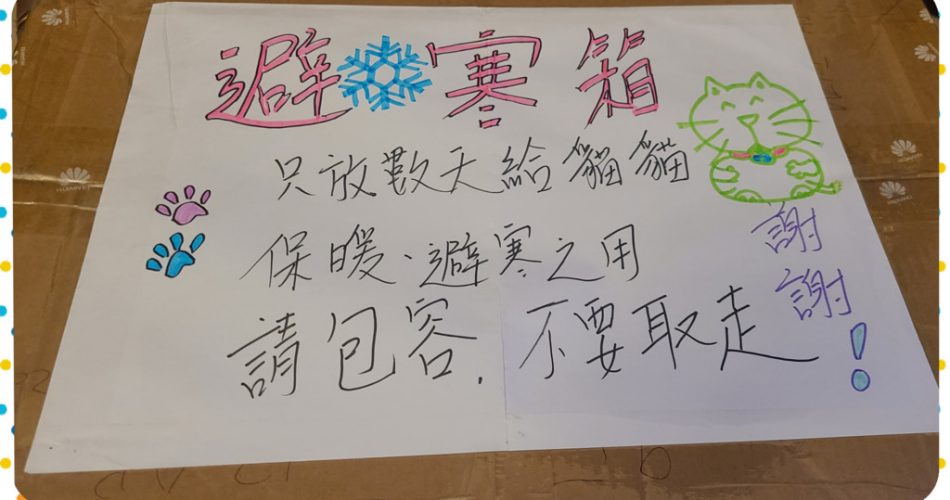 避寒箱
只放數天給貓貓
保暖、避寒之用
請包容.不要取走
謝謝!